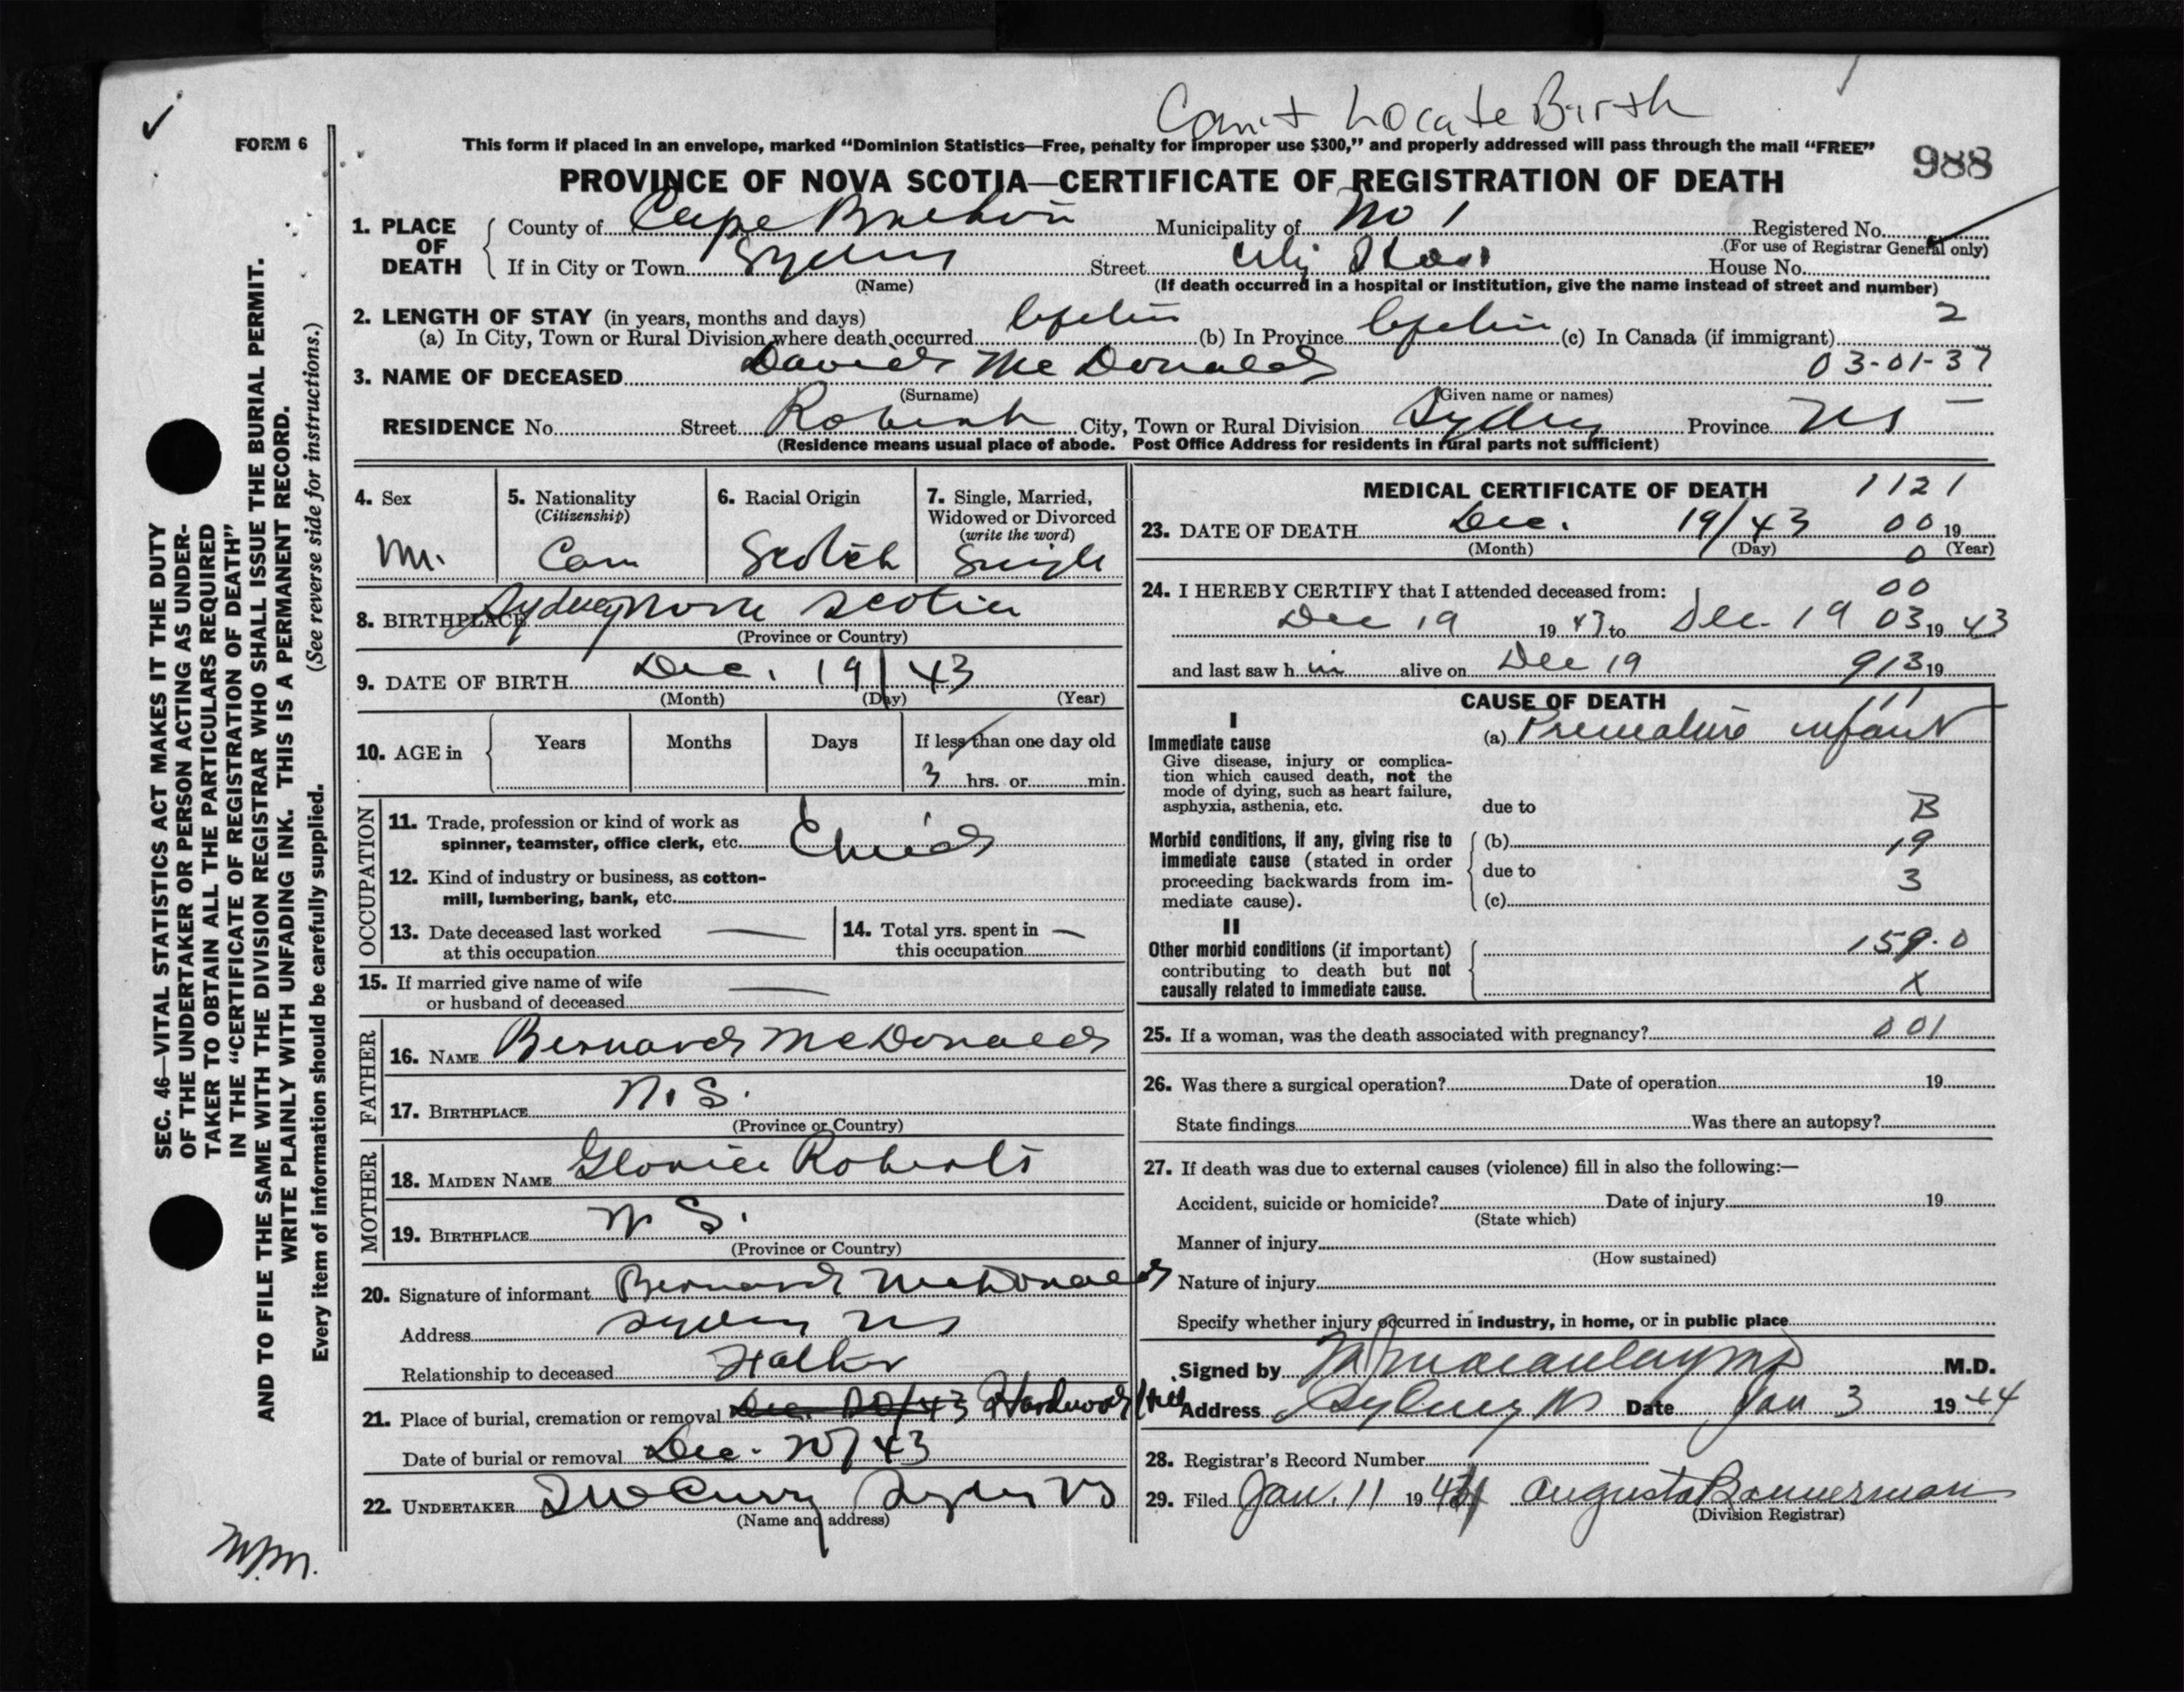 Can't Locate Birth
FORM 6
This form if placed in an envelope, marked "Dominion Statistics—Free, penalty for improper use $300," and properly addressed will pass through the mail "FREE"
988
PROVINCE OF NOVA SCOTIA—CERTIFICATE OF REGISTRATION OF DEATH
1. PLACE OF DEATH
County of Cape Breton Municipality of No 1 Registered No.
(For use of Registrar General only)
If in City or Town Sydney Street City Hos House No.
(Name) (If death occurred in a hospital or institution, give the name instead of street and number)
2. LENGTH OF STAY (in years, months and days) 2
(a) In City, Town or Rural Division where death occurred (b) In Province (c) In Canada (if immigrant)
3. NAME OF DECEASED David McDonald 03-01-37
(Surname) (Given name or names)
RESIDENCE No. Street City, Town or Rural Division Sydney Province NS
(Residence means usual place of abode. Post Office Address for residents in rural parts not sufficient)
4. Sex M.
5. Nationality (Citizenship) Can
6. Racial Origin Scotch
7. Single, Married, Widowed or Divorced (write the word) Single
8. BIRTHPLACE Sydney Nova Scotia
(Province or Country)
9. DATE OF BIRTH Dec. 19/43
(Month) (Day) (Year)
10. AGE in Years Months Days If less than one day old
3 hrs. or min.
OCCUPATION
11. Trade, profession or kind of work as
spinner, teamster, office clerk, etc. Child
12. Kind of industry or business, as cotton-
mill, lumbering, bank, etc.
13. Date deceased last worked at this occupation —
14. Total yrs. spent in this occupation —
15. If married give name of wife
or husband of deceased —
FATHER
16. NAME Bernard McDonald
17. BIRTHPLACE N.S.
(Province or Country)
MOTHER
18. MAIDEN NAME Roberts
19. BIRTHPLACE N S.
(Province or Country)
20. Signature of informant Bernard McDonald
Address Sydney NS
Relationship to deceased Father
21. Place of burial, cremation or removal Dec. 20/43 Hardwood Hill
Date of burial or removal Dec. 20/43
22. UNDERTAKER Curry Sydney NS
(Name and address)
MEDICAL CERTIFICATE OF DEATH 1121
23. DATE OF DEATH Dec. 19/43 00 19
(Month) (Day) (Year)
0
24. I HEREBY CERTIFY that I attended deceased from: 00
Dec 19 19 43 to Dec. 19 03 19 43
and last saw h im alive on Dec 19 913 19
111
CAUSE OF DEATH
I
Immediate cause (a) Premature infant
Give disease, injury or complica-
tion which caused death, not the
mode of dying, such as heart failure,
asphyxia, asthenia, etc. due to B
Morbid conditions, if any, giving rise to (b) 19
immediate cause (stated in order
proceeding backwards from im- due to 3
mediate cause). (c)
II
Other morbid conditions (if important) 159.0
contributing to death but not
causally related to immediate cause. X
25. If a woman, was the death associated with pregnancy? 001
26. Was there a surgical operation? Date of operation 19
State findings Was there an autopsy?
27. If death was due to external causes (violence) fill in also the following:—
Accident, suicide or homicide? Date of injury 19
(State which)
Manner of injury
(How sustained)
Nature of injury
Specify whether injury occurred in industry, in home, or in public place
Signed by Macaulay MD M.D.
Address Sydney NS Date Jan 3 19 44
28. Registrar's Record Number
29. Filed Jan. 11 19 44 Augusta Bannerman
(Division Registrar)
SEC. 46—VITAL STATISTICS ACT MAKES IT THE DUTY
OF THE UNDERTAKER OR PERSON ACTING AS UNDER-
TAKER TO OBTAIN ALL THE PARTICULARS REQUIRED
IN THE "CERTIFICATE OF REGISTRATION OF DEATH"
AND TO FILE THE SAME WITH THE DIVISION REGISTRAR WHO SHALL ISSUE THE BURIAL PERMIT.
WRITE PLAINLY WITH UNFADING INK. THIS IS A PERMANENT RECORD.
Every item of information should be carefully supplied. (See reverse side for instructions.)